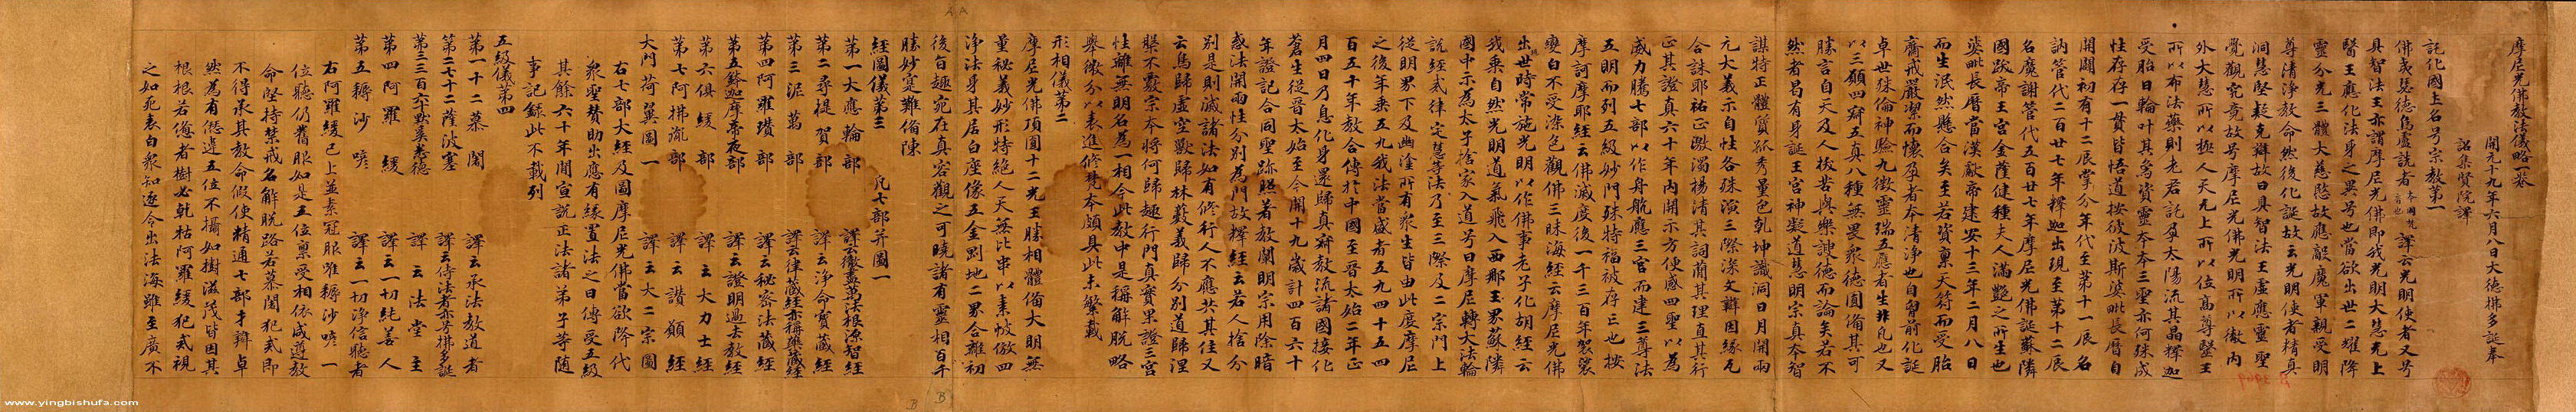 摩尼光佛教法儀略一卷
開元十九年六月八日大德拂多誕奉
詔集賢院譯
託化國主名号宗教第一
佛夷瑟德烏盧詵者本國梵音也譯云光明使者又号
具智法王亦謂摩尼光佛即我光明大慧无上
醫王應化法身之異号也當欲出世二耀降
靈分光三體大慈愍故應敵魔軍親受明
尊清淨教命然後化誕故云光明使者精真
洞慧堅疑克辯故曰具智法王虛應靈聖
覺觀究竟故号摩尼光佛光明所以徹內
外大慧所以極人天无上所以位高尊醫王
所以布法藥則老君託孕太陽流其晶釋迦
受胎日輪叶其象資靈本本三聖亦何殊成
性存存一貫皆悟道按彼波斯婆毗長曆自
開闢初有十二辰掌分年代至第十一辰名
訥管代二百廿七年釋迦出現至第十二辰
名魔謝管代五百廿七年摩尼光佛誕蘇隣
國跋帝王宮金薩健種夫人滿艷之所生也
婆毗長曆當漢獻帝建安十三年二月八日
而生泯然懸合矣至若資稟天符而受胎
齋戒嚴潔而懷孕者本清淨也自胷前化誕
卓世殊倫神驗九徵靈瑞五應者生非凡也又
以三願四寂五真八種無畏衆德圓備其可
勝言自天及人拔苦與樂諛德而論矣若不
然者曷有身誕王宮神凝道慧明宗真本智
謀特正體質孤秀量包乾坤識洞日月開兩
元大義示自性各殊演三際深文辯因緣瓦
合誅耶祐正激濁揚清其詞蕳其理直其行
正其證真六十年內開示方便感四聖以為
威力騰七部以作舟航應三宮而建三尊法
五明而列五級妙門殊特福被存亡也按
摩訶摩耶經云佛滅度後一千三百年袈裟
變白不受染色觀佛三昧海經云摩尼光佛
出世時常施光明以作佛事老子化胡經云
我乗自然光明道氣飛入西那玉界蘇隣
國中示為太子捨家入道号曰摩尼轉大法輪
說經戒律定慧等法乃至三際及二宗門上
從明界下及幽塗所有衆生皆由此度摩尼
之後年垂五九我法當盛者五九四十五四
百五十年教合傳於中國至晉太始二年正
月四日乃息化身還歸真寂教流諸國接化
蒼生從晉太始至今開十九歲計四百六十
年證記合同聖跡照著教闡明宗用除暗
惑法開兩性分別為門故釋經云若人捨分
別是則滅諸法如有修行人不應共其住又
云鳥歸虛空獸歸林藪義歸分別道歸涅
槃不覈宗本將何歸趣行門真實果證三宮
性離無明名為一相今此教中是稱解脫略
舉微分以表進修梵本頗具此未繁載
形相儀第二
摩尼光佛頂圓十二光王勝相體備大明無
量秘義妙形特絕人天無比串以素帔倣四
淨法身其居白座像五金剛地二界合離初
後旨趣宛在真容觀之可曉諸有靈相百千
勝妙寔難備陳
經圖儀第三　凡七部并圖一
第一大應輪部　譯云徹盡萬法根源智經
第二尋提賀部　譯云淨命寶藏經
第三泥萬部　譯云律藏經亦稱藥藏經
第四阿羅瓚部　譯云秘密法藏經
第五鉢迦摩帝夜部　譯云證明過去教經
第六俱緩部　譯云大力士經
第七阿拂胤部　譯云讚願經
大門荷翼圖一　譯云大二宗圖
右七部大經及圖摩尼光佛當欲降代
衆聖贊助出應有緣置法之日傳受五級
其餘六十年間宣說正法諸弟子等隨
事記録此不載列
五級儀第四
第一十二慕闍　譯云承法教道者
第二七十二薩波塞　譯云侍法者亦号拂多誕
第三三百六十默奚悉德　譯云法堂主
第四阿羅緩　譯云一切純善人
第五耨沙喭　譯云一切淨信聽者
右阿羅緩已上並素冠服唯耨沙喭一
位聽仍舊服如是五位稟受相依咸遵教
命堅持禁戒名解脫路若慕闍犯戒即
不得承其教命假使精通七部才辯卓
然為有愆違五位不攝如樹滋茂皆因其
根根若憊者樹必乾枯阿羅緩犯戒視
之如死表白衆知逐令出法海雖至廣不
www.yingbishufa.com